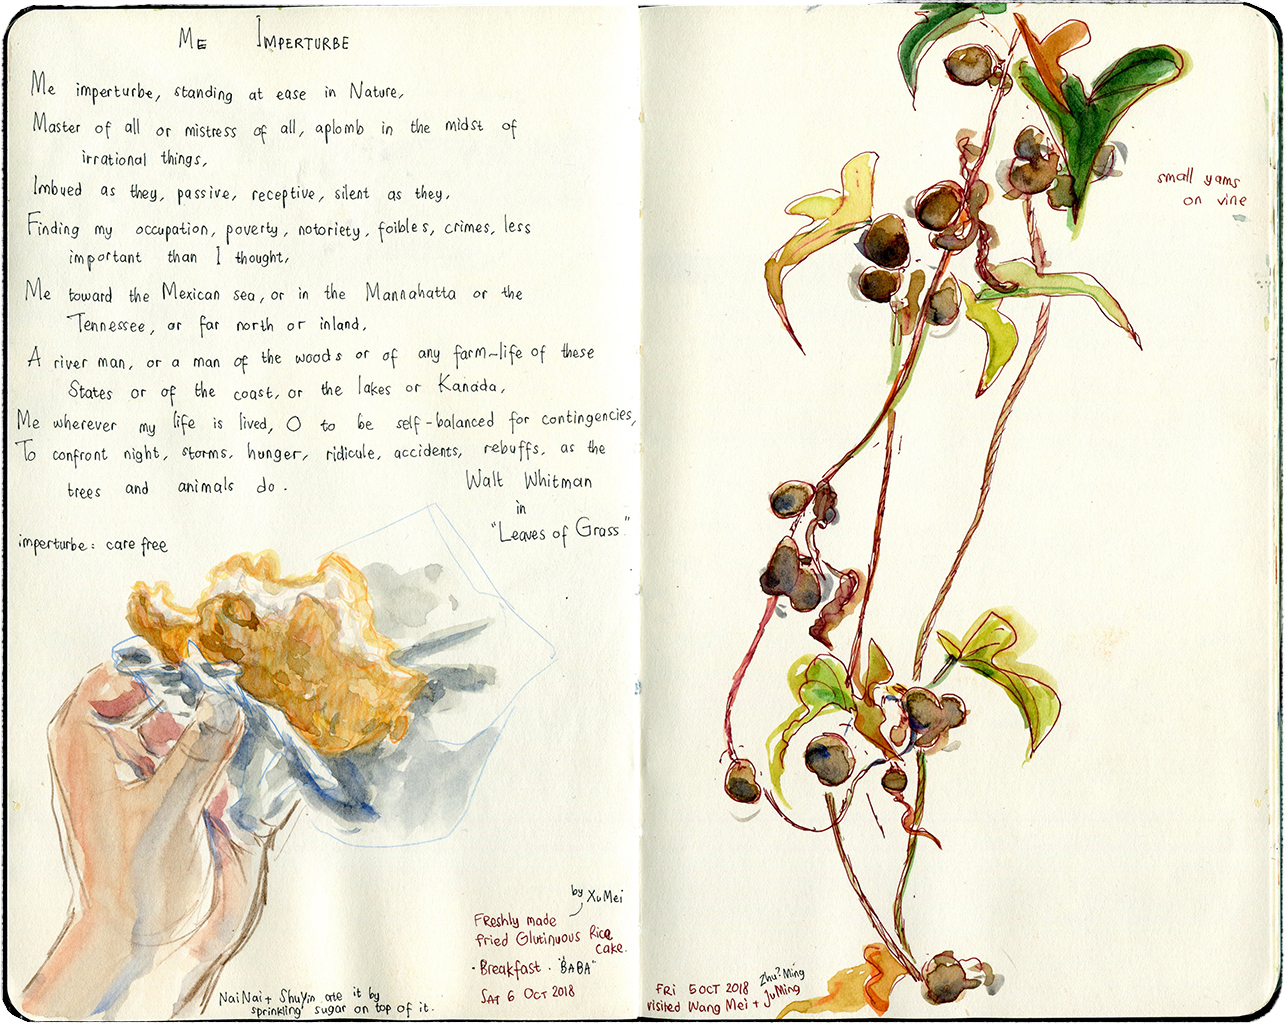 ME IMPERTURBE
Me imperturbe, standing at ease in Nature,
Master of all or mistress of all, aplomb in the midst of
irrational things,
Imbued as they, passive, receptive, silent as they,
Finding my occupation, poverty, notoriety, foibles, crimes, less
important than I thought,
Me toward the Mexican sea, or in the Mannahatta or the
Tennessee, or far north or inland,
A river man, or a man of the woods or of any farm-life of these
States or of the coast, or the lakes or Kanada,
Me wherever my life is lived, O to be self-balanced for contingencies,
To confront night, storms, hunger, ridicule, accidents, rebuffs, as the
trees and animals do.
Walt Whitman
in
"Leaves of Grass"
imperturbe: care free
by XuMei
Freshly made
fried Glutinuous Rice
cake.
· Breakfast · "BABA"
SAT 6 OCT 2018
NaiNai + ShuYin ate it by
sprinkling sugar on top of it.
small yams
on vine
FRI 5 OCT 2018
Zhu? Ming
visited Wang Mei + JuMing